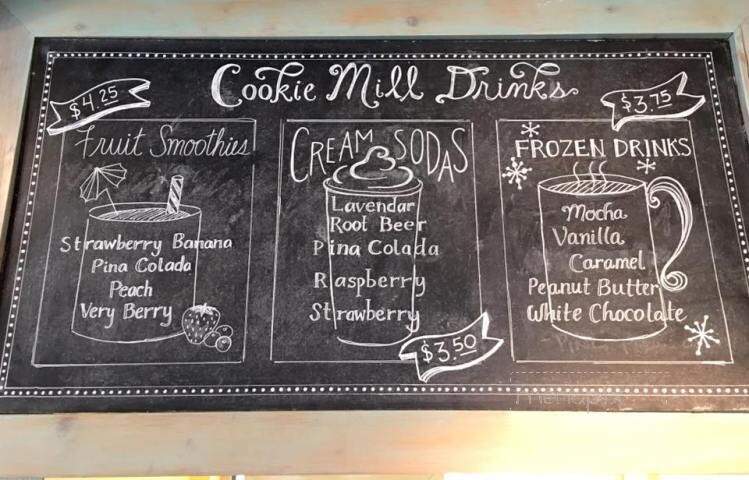 Cookie Mill Drinks
$4.25
Fruit Smoothies
Strawberry Banana
Pina Colada
Peach
Very Berry
CREAM SODAS
Lavendar
Root Beer
Pina Colada
Raspberry
Strawberry
$3.50
$3.75
FROZEN DRINKS
Mocha
Vanilla
Caramel
Peanut Butter
White Chocolate